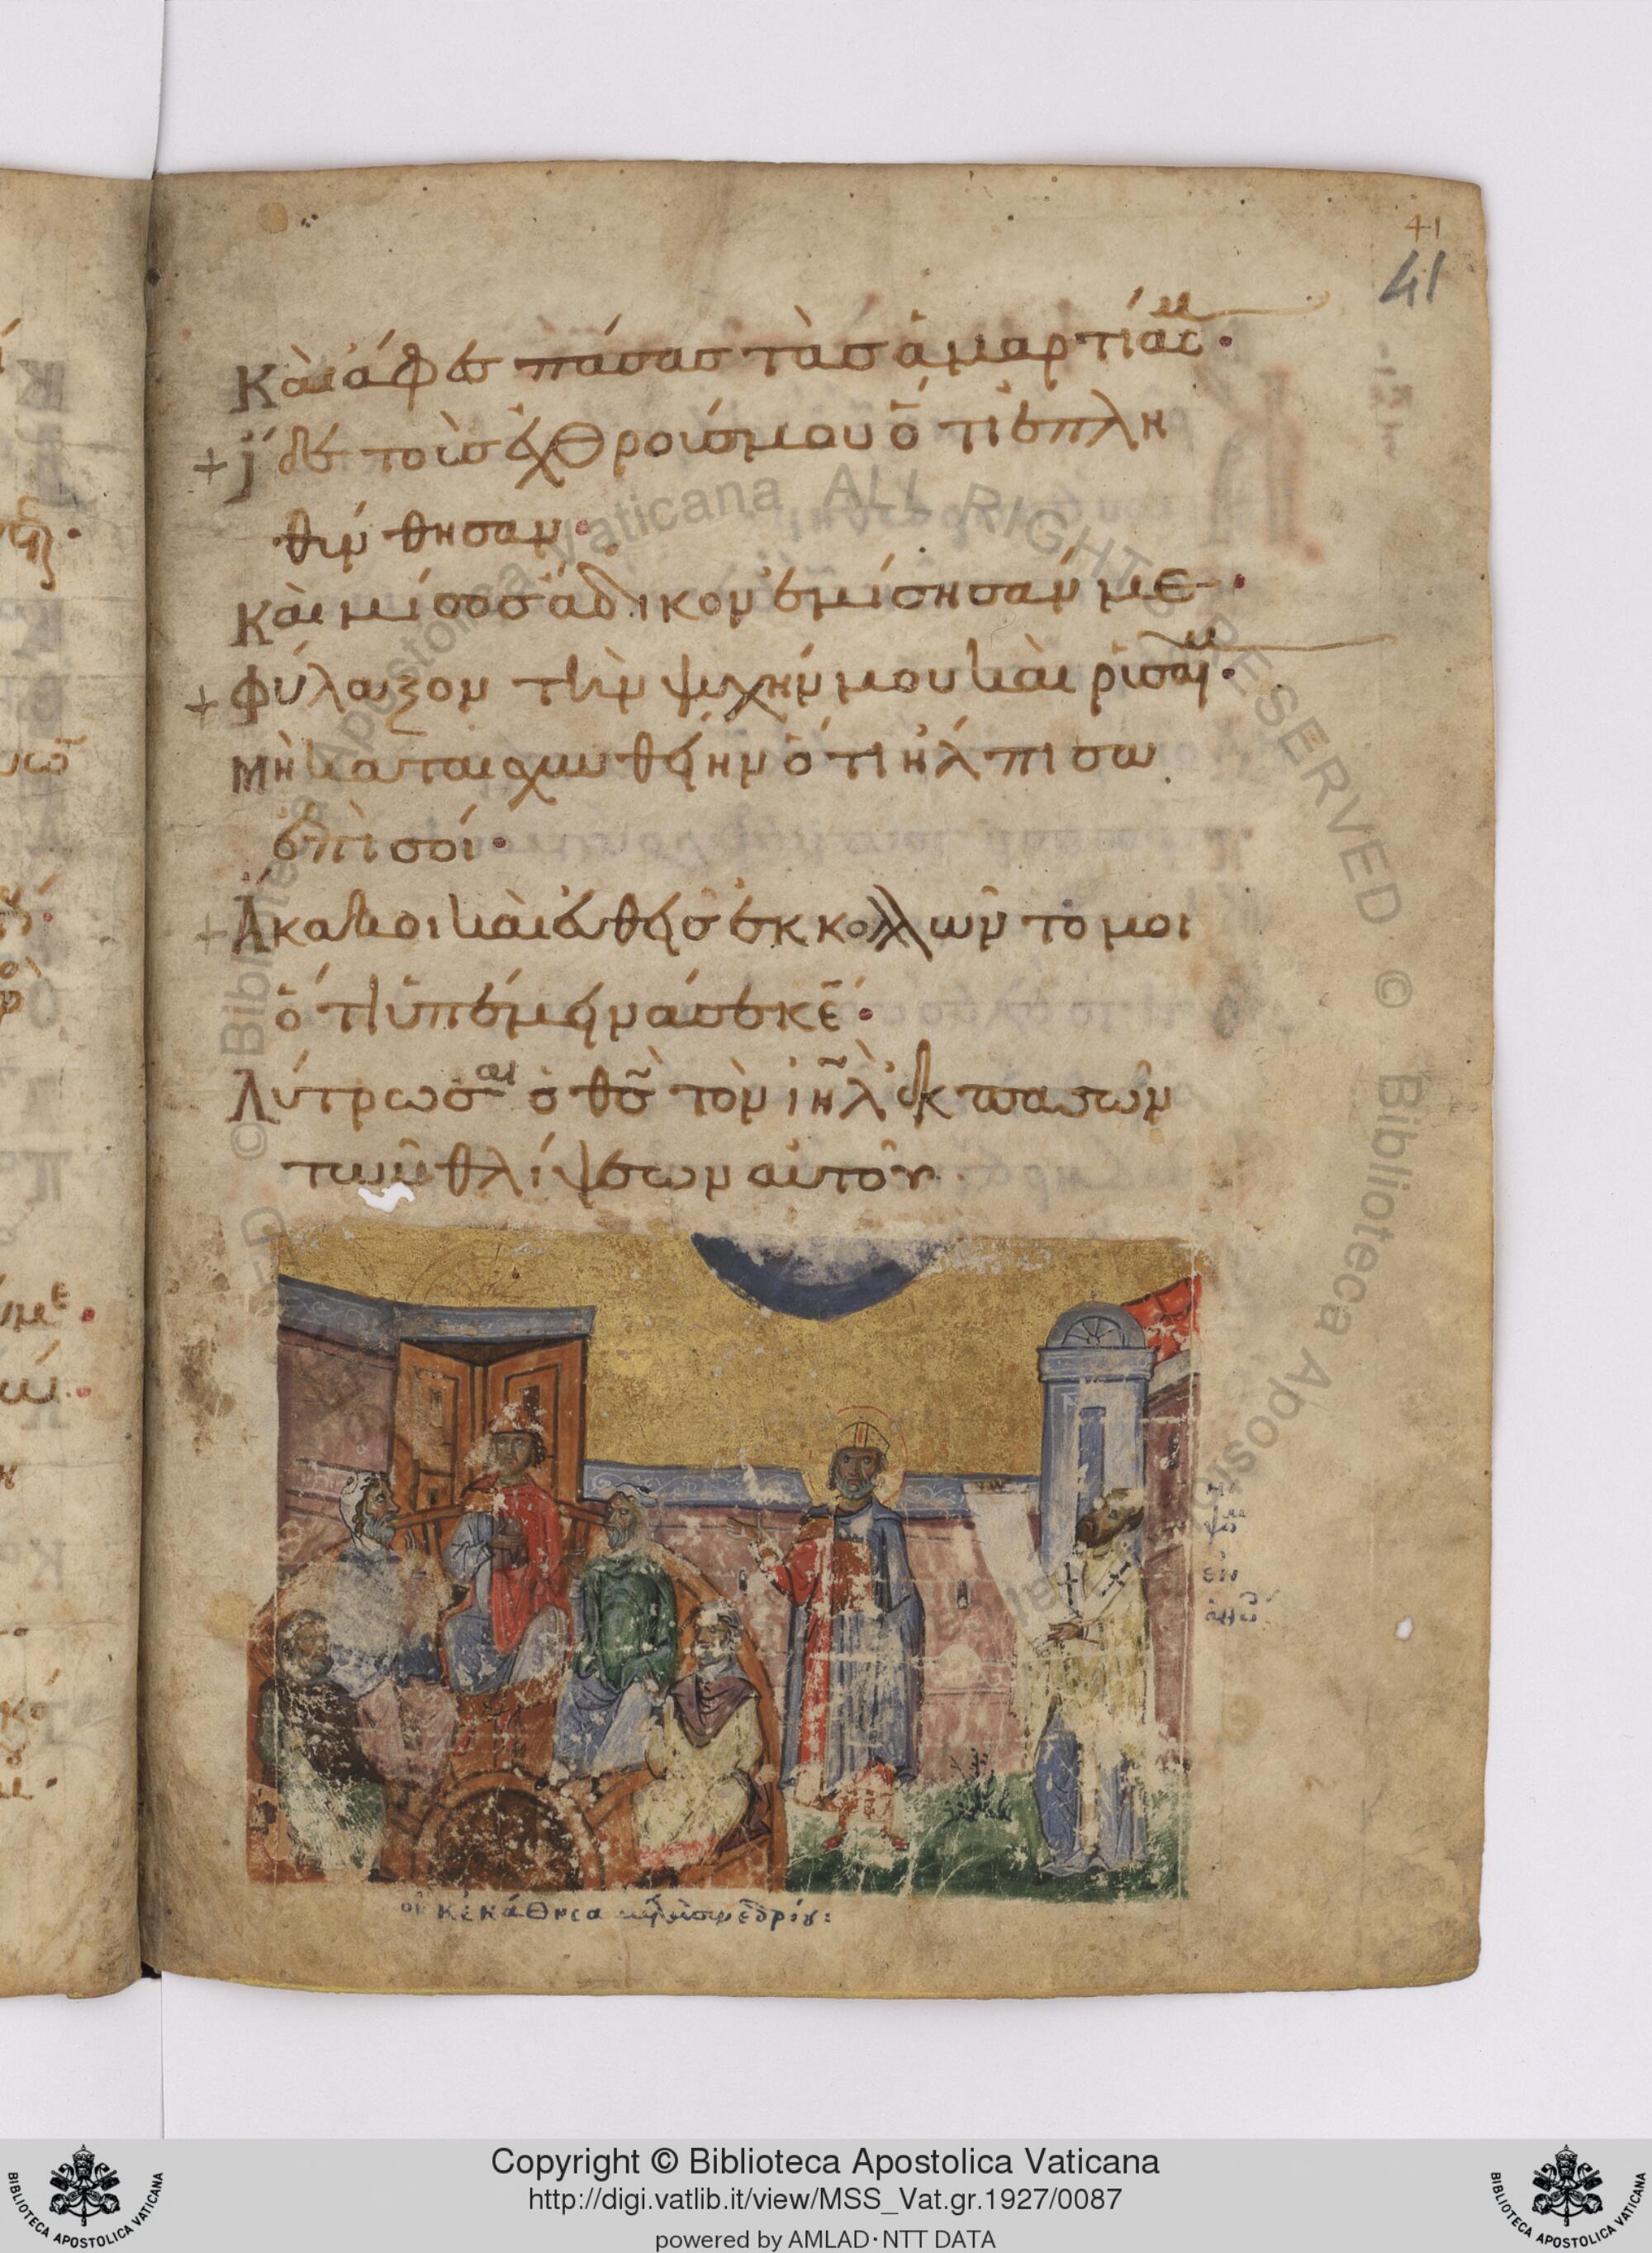 41
41
Καὶ ἄφες πάσας τὰς ἁμαρτίας μου·
+ ἴδε τοὺς ἐχθρούς μου ὅτι ἐπλη
θύνθησαν·
Καὶ μίσος ἄδικον ἐμίσησάν με·
+ Φύλαξον τὴν ψυχήν μου καὶ ῥῦσαί με·
Μὴ καταισχυνθείην ὅτι ἤλπισα
ἐπὶ σοί·
+ Ἄκακοι καὶ εὐθεῖς ἐκολλῶντό μοι
ὅτι ὑπέμεινά σε κε·
Λύτρωσαι ὁ θς τὸν ιηλ ἐκ πασῶν
τῶν θλίψεων αὐτοῦ
Copyright © Biblioteca Apostolica Vaticana
http://digi.vatlib.it/view/MSS_Vat.gr.1927/0087
powered by AMLAD·NTT DATA
BIBLIOTECA APOSTOLICA VATICANA
BIBLIOTECA APOSTOLICA VATICANA